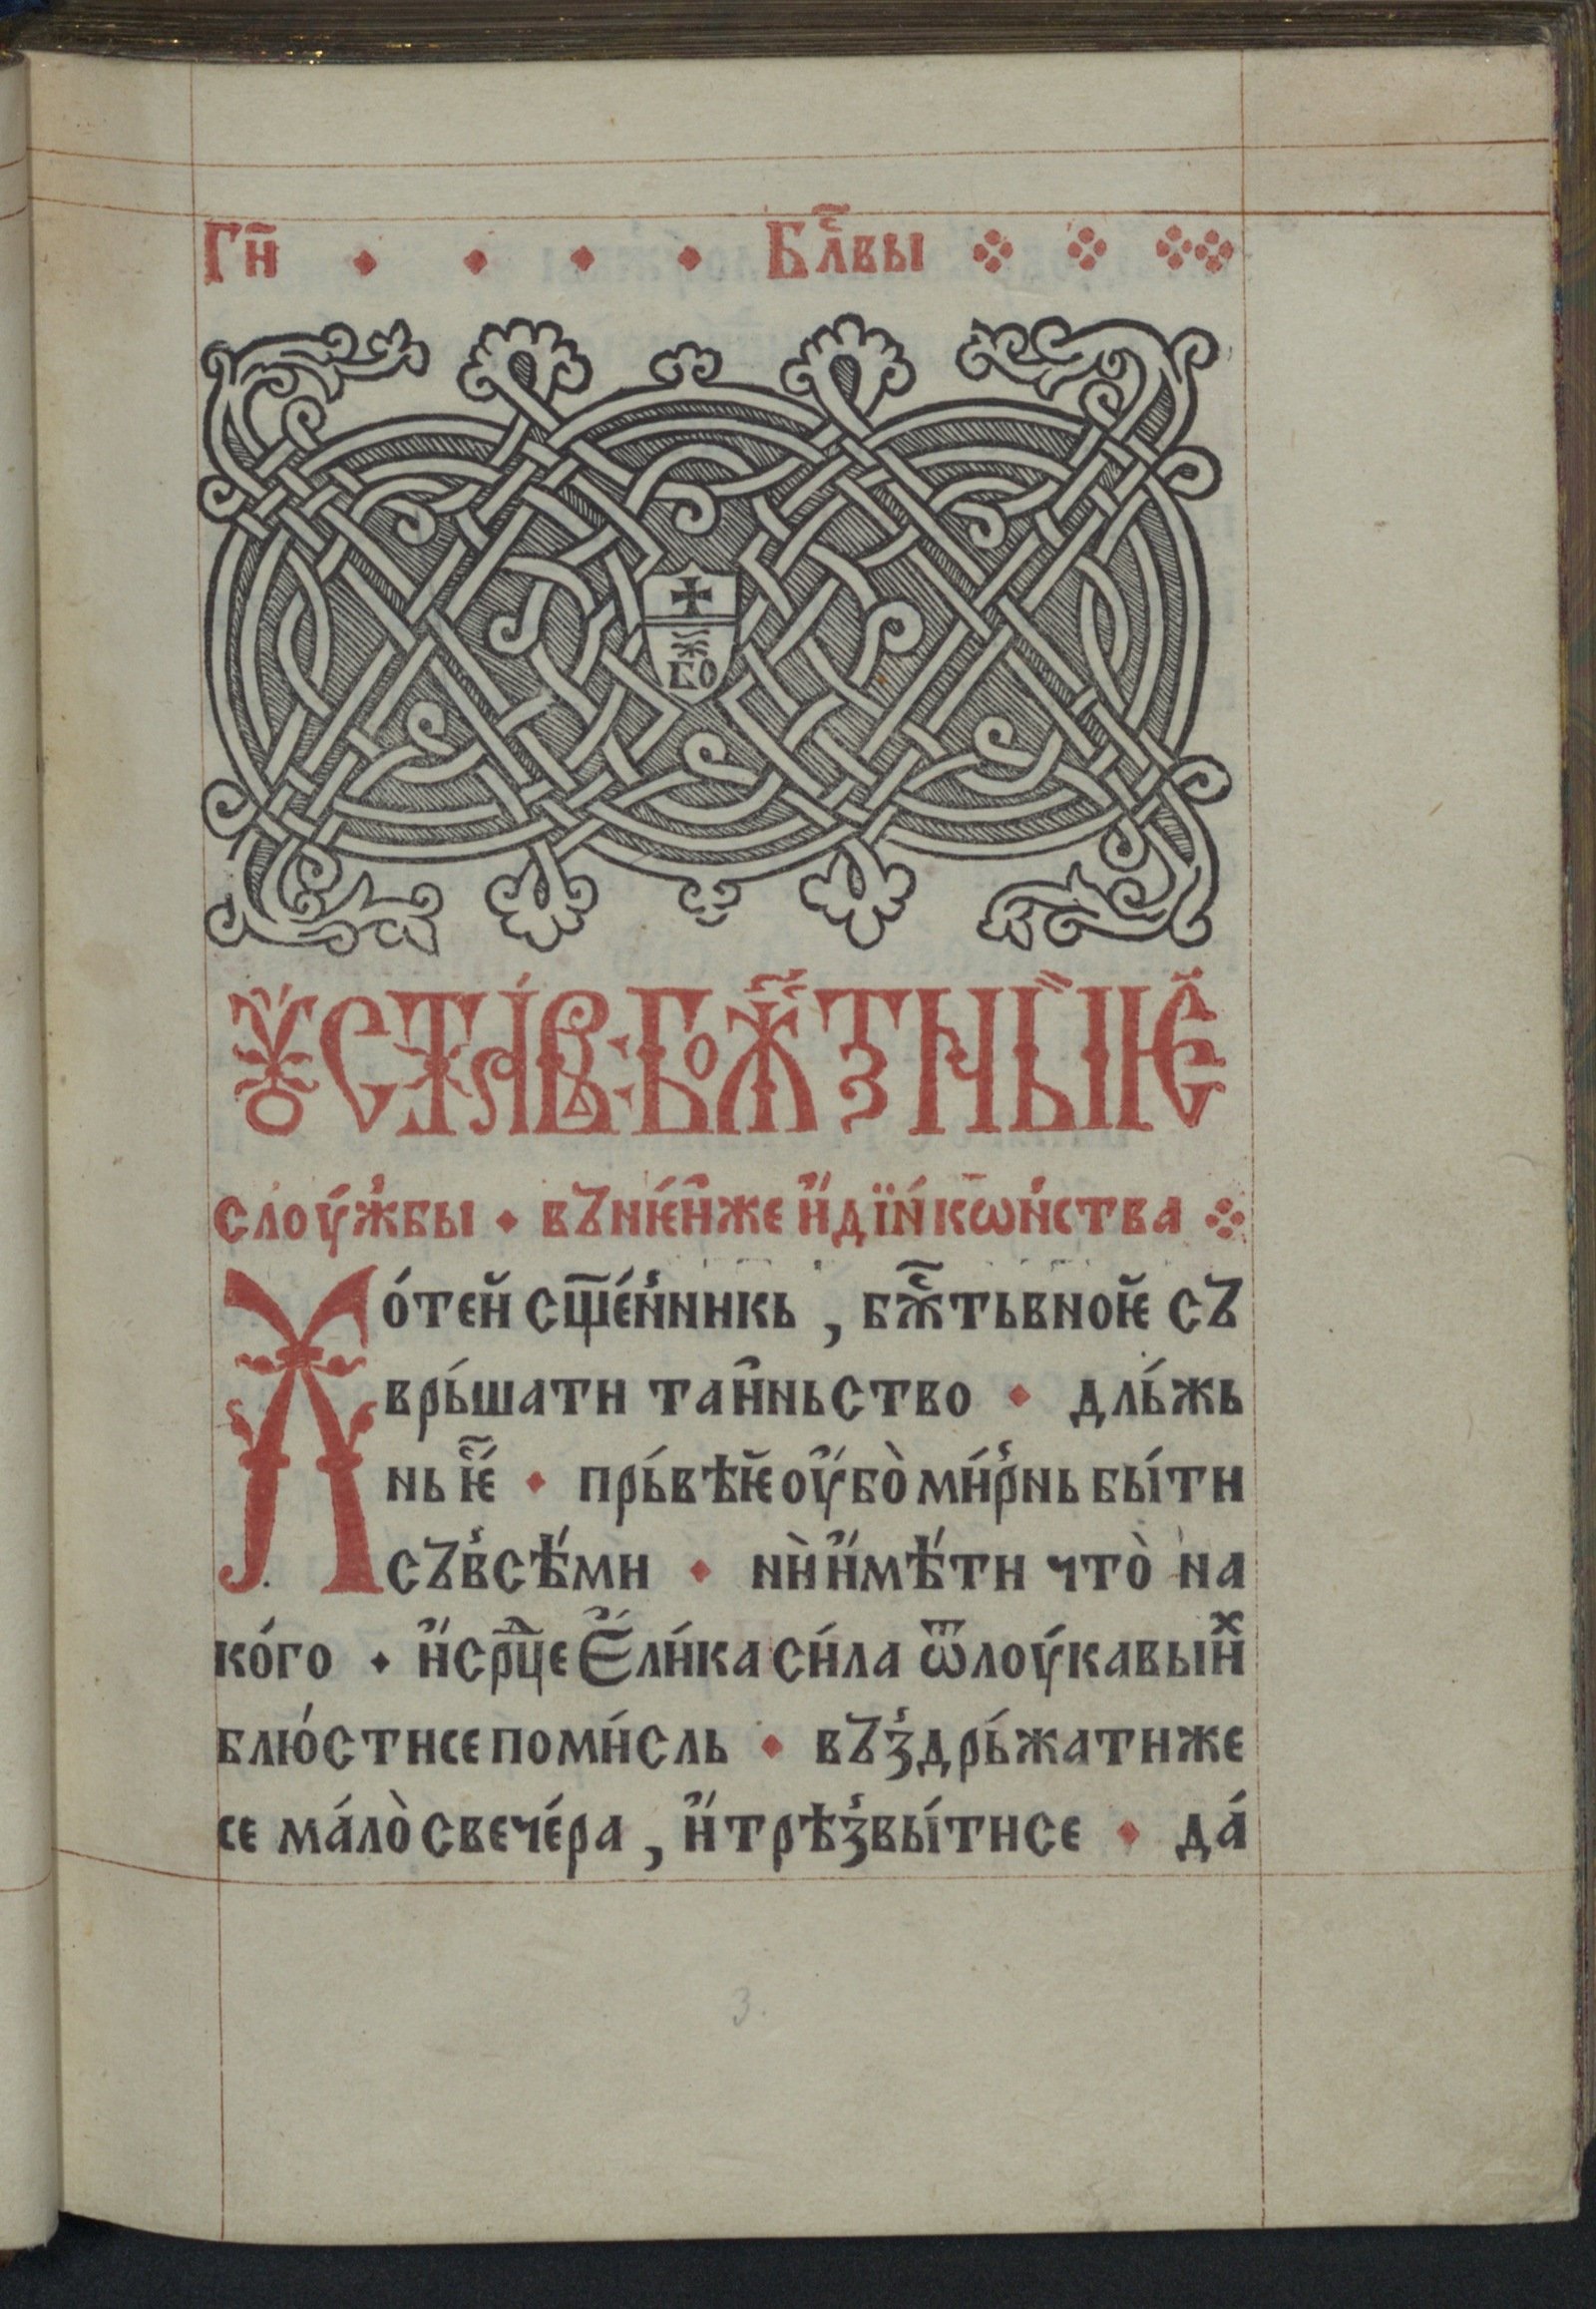 Гн҃ • • • • Бл҃вы
Бѡ
Ꙋста́в· бж҃тны́ѥ
слоу́жбы • въ нѥ́иже и҆ дїа́кѡнства
Х о́теи сщ҃е́нникь , бж҃тьвноѥ съ
врь́шати таиньство • дль́жь
нь ѥ҃ • прь́вѣѥ оу҆бо̀ ми́рнь бы́ти
съ в҆сѣ́ми • нѝ и҆мѣ́ти что̀ на
ко́го • и҆ ср҃це Е҆ли́ка си́ла ѿ лоу́кавыих
блю́стисе поми́сль • въз҆дрь́жатиже
се ма́ло̀ свече́ра , и҆ трѣз҆вы́тисе • да́
3.